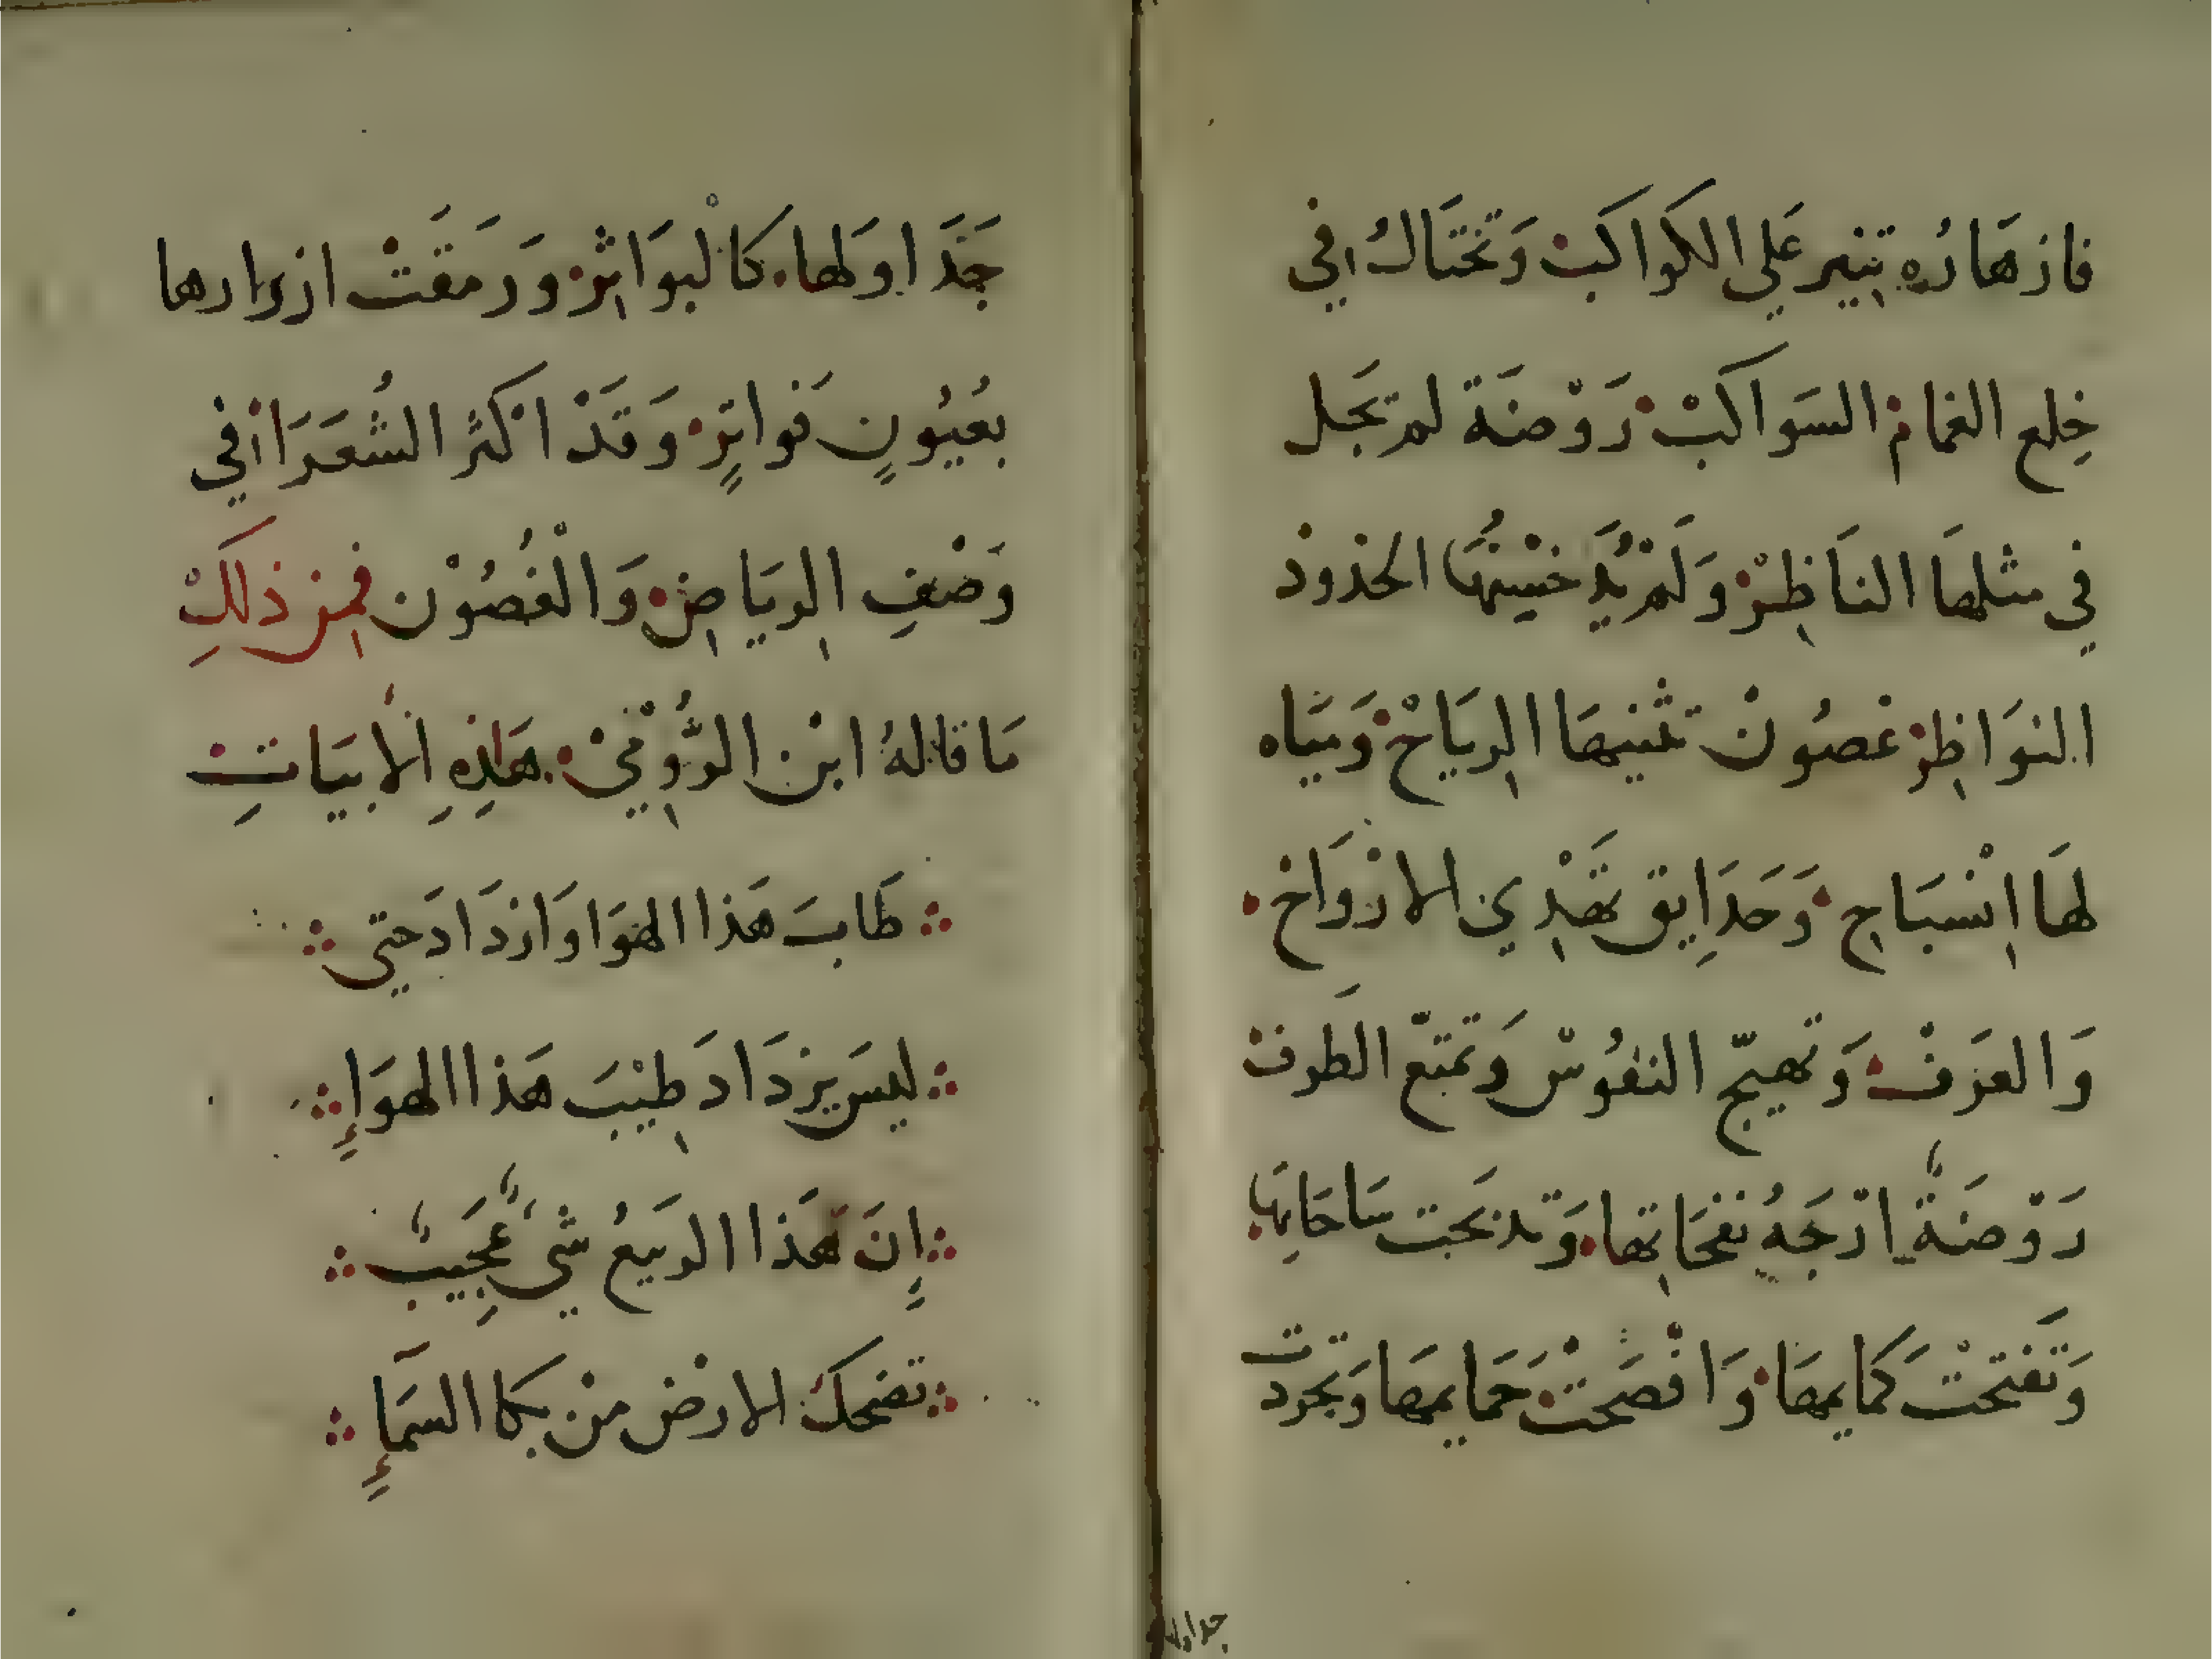 فازهَارُه تنير علي الكَواكبْ وَتختَالُ في
خِلع الغمامْ السَواكبْ رَوْضَة لم تجَل
في مثلهَا النَاظِرْ وَلَمْ يُدَ خسِنهَا الخدودْ
النوَاظِرْ غصُونْ تثنيهَا الرِيَاحْ وَميَاه
لهَا اِنْسبَاح وَحَدَايِق تهْدِي الارْوَاحْ
وَالعَرَفْ وَتهيّج النفُوسْ وَتمتّع الطَرفْ
رَوْضَةٌ ارْجَهُ نفحَاتِها وَتدبحَت سَاحَاتِهَا
وَتَفتحْت كمَايمهَا وَافْصَحَتْ حمَايمهَا وَتجردت
جداولها
جَدَاولها كالْبوَاتِرْ وَرَمَقَتْ ازرارها
بعُيُونٍ فَواتِرٍ وَقَدْ اكْثَر الشُعَرَاء في
وَصْفِ الرِيَاضِ وَالْغُصُوْن فمِن ذلِكَ
مَا قالهُ ابْن الرُّوْمِيْ هَذِهِ الأبيَاتِ
طَابَ هَذا الهوَا وَازدَادَ حتي
ليسَ يزدَادَ طِيْبَ هَذا الهوَاءِ
إِنَ هَذا الربيَعُ شيَءٌ عَجِيَبٌ
تضحكُ الارْض مْن بكا السمَآءِ